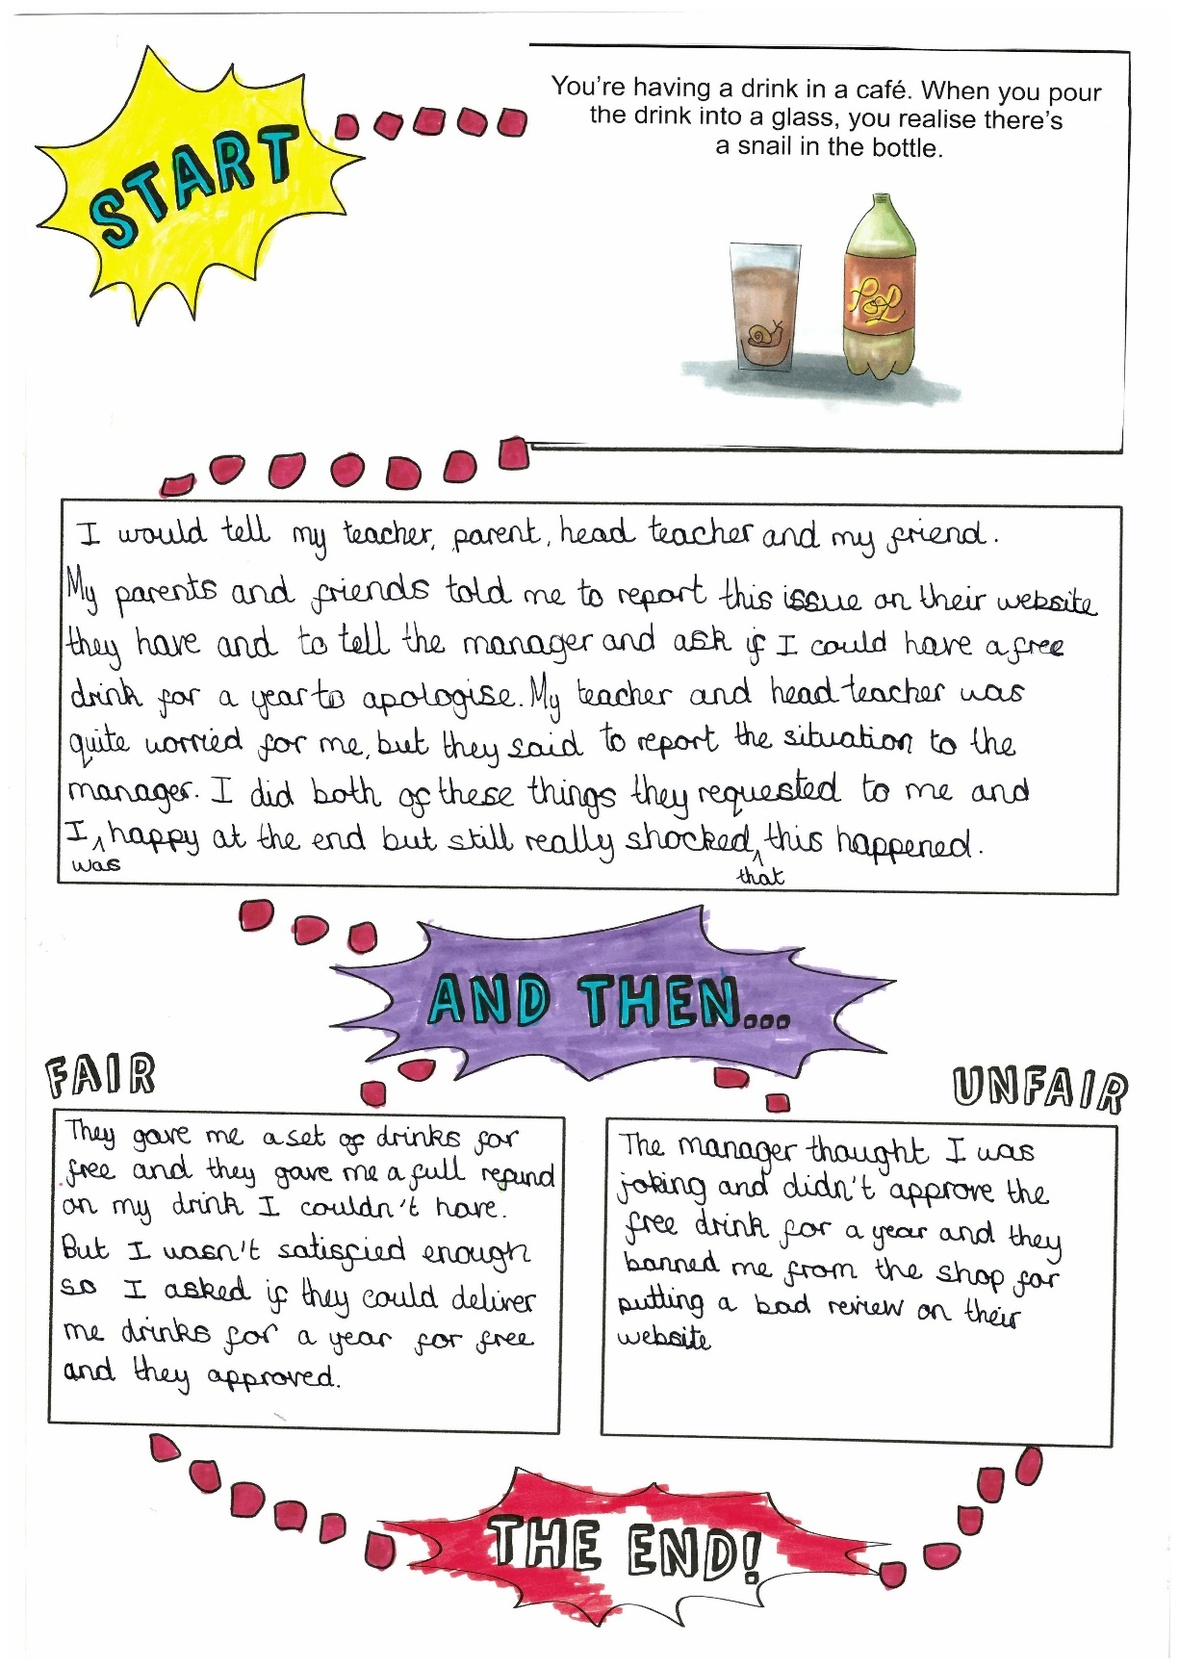 START
You're having a drink in a café. When you pour
the drink into a glass, you realise there's
a snail in the bottle.
I would tell my teacher, parent, head teacher and my friend.
My parents and friends told me to report this issue on their website
they have and to tell the manager and ask if I could have a free
drink for a year to apologise. My teacher and head teacher was
quite worried for me, but they said to report the situation to the
manager. I did both of these things they requested to me and
I ^ happy at the end but still really shocked ^ this happened.
was
that
AND THEN...
FAIR
They gave me a set of drinks for
free and they gave me a full refund
on my drink I couldn't have.
But I wasn't satisfied enough
so I asked if they could deliver
me drinks for a year for free
and they approved.
UNFAIR
The manager thought I was
joking and didn't approve the
free drink for a year and they
banned me from the shop for
putting a bad review on their
website
THE END!